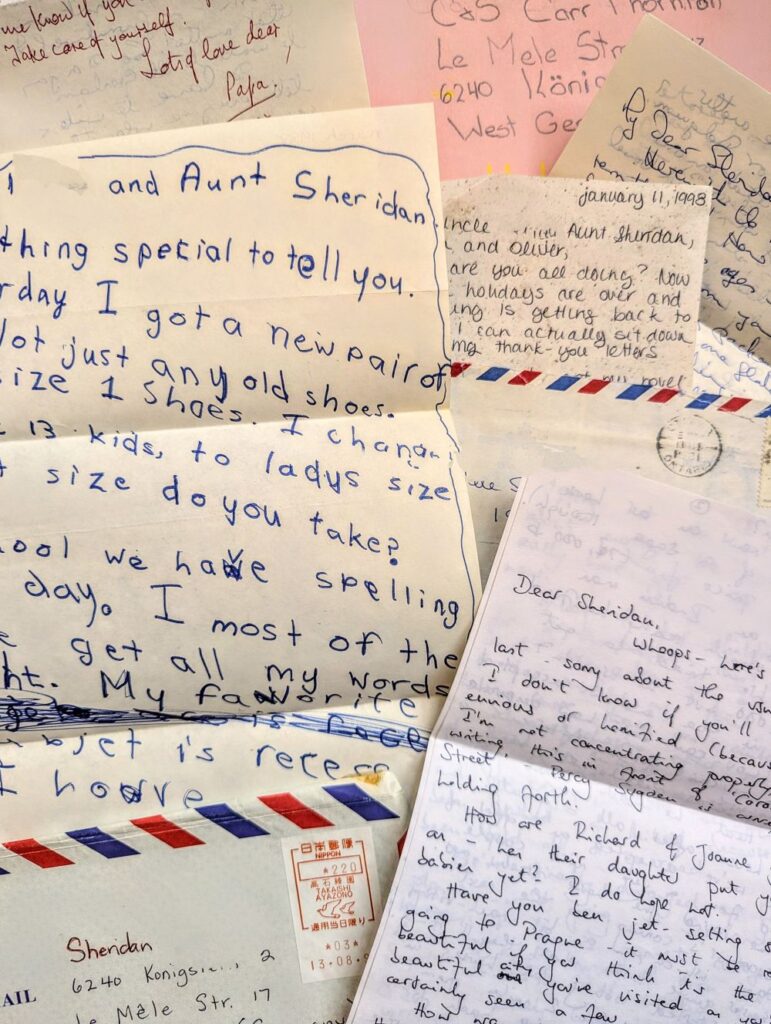 me know if you
Take care of yourself.
Lots of love dear,
Papa.
C&S Carr Thornton
Le Mele Str
6240 König
West Ge
My Dear Sherida
Now
and Aunt Sheridan
thing special to tell you.
rday I got a new pair of
Not just any old shoes.
size 1 shoes. I chang
13 kids, to ladys size
t size do you take?
ool we have spelling
day. I most of the
get all my words
ht. My favorite
is rece
bjet is recess
I hove
January 11, 1998
Uncle Aunt Sheridan,
and Oliver,
are you all doing? Now
holidays are over and
ing is getting back to
I can actually sit down
my thank-you letters
novel
ONTARIO
Dear Sheridan,
Whoops - here's
last - sorry about the usu
I don't know if you'll
envious or horrified (becaus
I'm not concentrating properly
writing this in front of 'Coro
Street - Percy Sugden is
holding forth.
How are Richard & Joanne
on - has their daughter put y
babies yet? I do hope not.
Have you been jet-setting
going to Prague - it must be
beautiful if you think it's the
beautiful city you've visited as yo
certainly seen a few.
How are
日本郵便
NIPPON
*220
高石綾園
TAKAISHI
AYAZONO
適用当日限り
*03*
13.08.
Sheridan
6240 Konigs 2
AIL
Le Mêle Str. 17